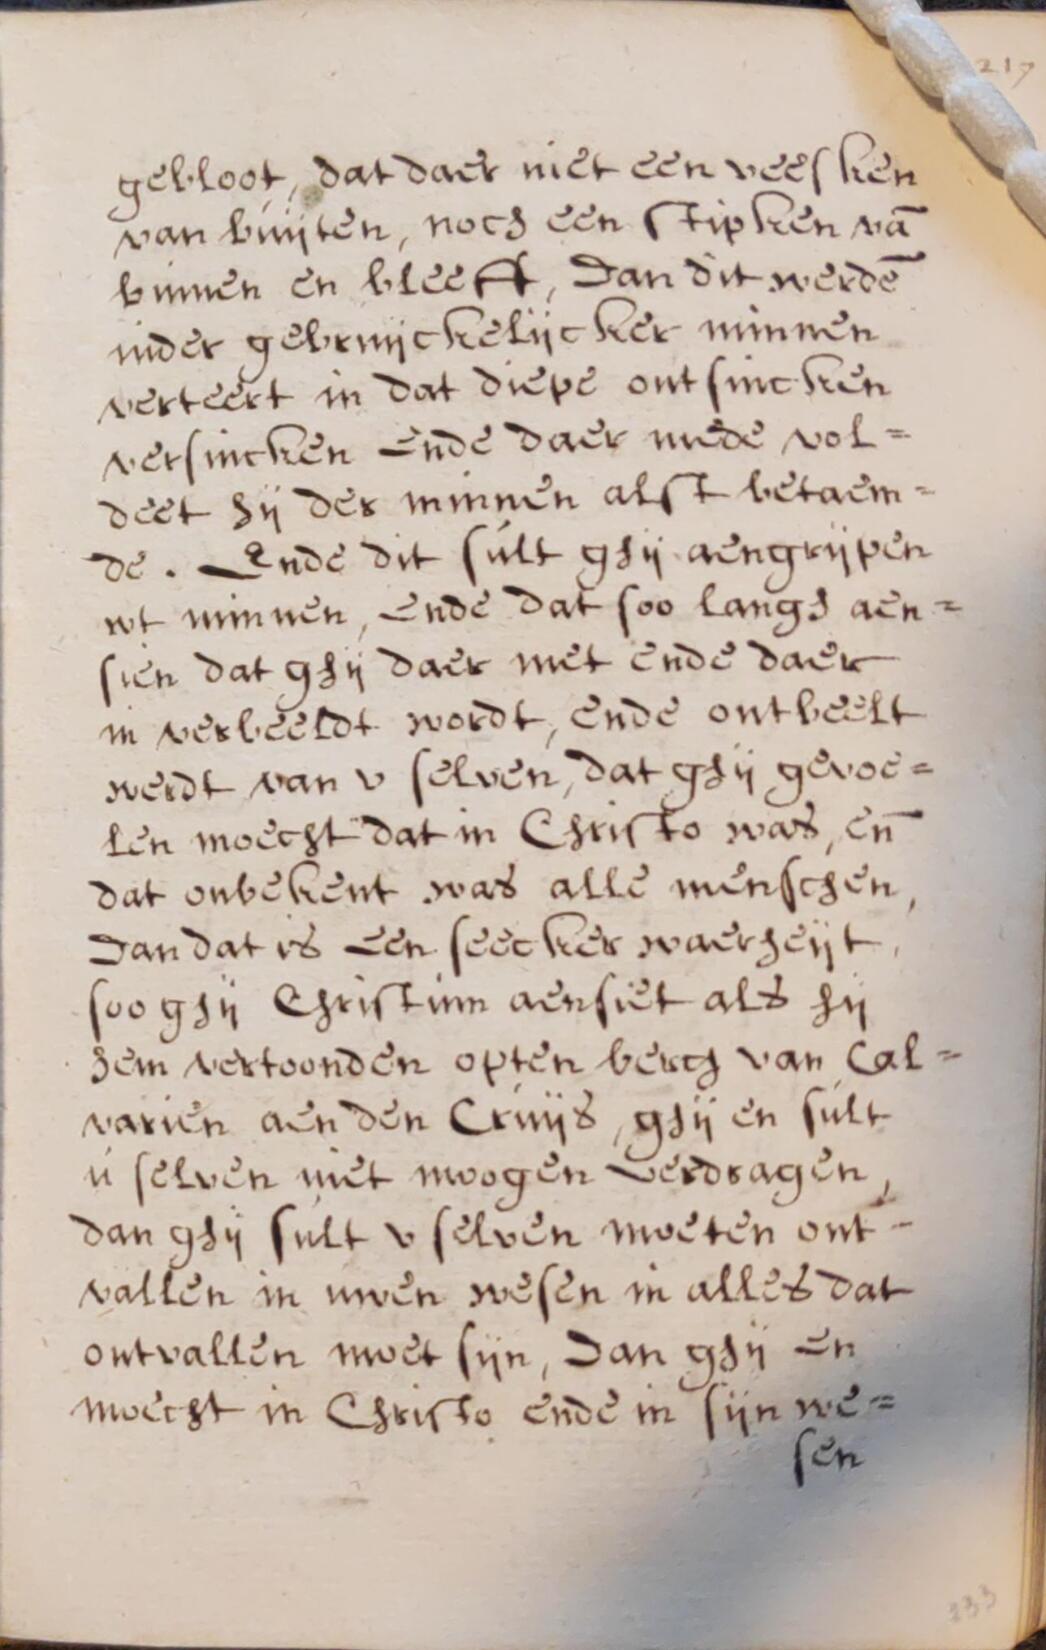 217
gebloot, dat daer niet een veesken
van buijten, noch een stipken vā
binnen en bleeff, Dan dit werdē
inder gebruijckelijcker minnen
verteert in dat diepe ontsincken
versincken Ende daer mede vol=
deet hij der minnen alst betaem=
de. Ende dit sult ghij aengrijpen
wt minnen, Ende dat soo langh aen=
sien dat ghij daer met ende daer
in verbeeldt wordt, ende ontbeelt
werdt van v selven, dat ghij gevoe=
len moecht dat in Christo was, en̄
dat onbekent was alle menschen,
Dan dat is Een seecker waerheijt,
soo ghij Christum aensiet als hij
hem vertoonden opten berch van Cal=
varien aen den Cruijs, ghij en sult
ú selven niet moogen verdragen,
dan ghij sult v selven moeten ont-
vallen in uwen wesen in alles dat
ontvallen moet sijn, Dan ghij En
moecht in Christo ende in sijn we=
sen
233